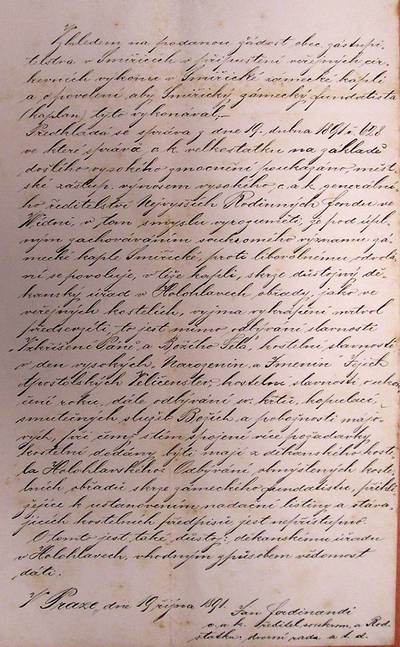 Vzhledem na podanou žádost obec. zástupi-
telstva v Smiřicích o připuštění veřejných cír-
kevních výkonův v Smiřické zámecké kapli
a o povolení aby Smiřický zámecký fundatista
(kaplan) tyto vykonával,
Předkládá se správa z dne 19. dubna 1891 č. 628
ve které správa c. k. velkostatku na základě
došlého vysokého zmocnění poukázáno, míst-
ské zástup. výnosem vysokého c. a k. generálné-
ho ředitelství Nejvyšších Rodinných fondu ve
Vídni, v tom smyslu vyrozuměti: že pod úpl-
ným zachováváním soukromého významu zá-
mecké kaple Smiřické, proti libovolnému odvolá-
ní se povoluje, v téže kapli, skrze důstojný dě-
kanský úřad v Holohlavech, obřady, jako ve
veřejných kostelích, vyjma vykrápění mrtvol
předsevzeti, to jest mimo odbývání slavností
Vzkříšení Páně a Božího Těla, kostelní slavnosti
v den vysokých Narozenin a Jmenin Jejich
Apoštolských Veličenstev, kostelní slavnosti o ukon-
čení roku, dále odbývání sv. křtů, kopulací,
smutečných služeb Božích a pobožností májo-
vých, při čemž s tím spojené více požadavky
kostelní dodány býti mají z děkanského koste-
la Holohlavského. Odbývání obmýšlených koste-
lních obřadů skrze zámeckého fundatistu, přihlí-
žejíce k ustanovením nadační listiny a stáva-
jících kostelních předpisů jest nepřístupno.
O tomto jest také důstoj. děkanskému úřadu
v Holohlavech, vhodným způsobem vědomost
dáti.
V Praze, dne 19 října 1891.
Jan Ferdinandi
c. a k. ředitel soukrom. a Rod.
statků dvorní rada a t. d.